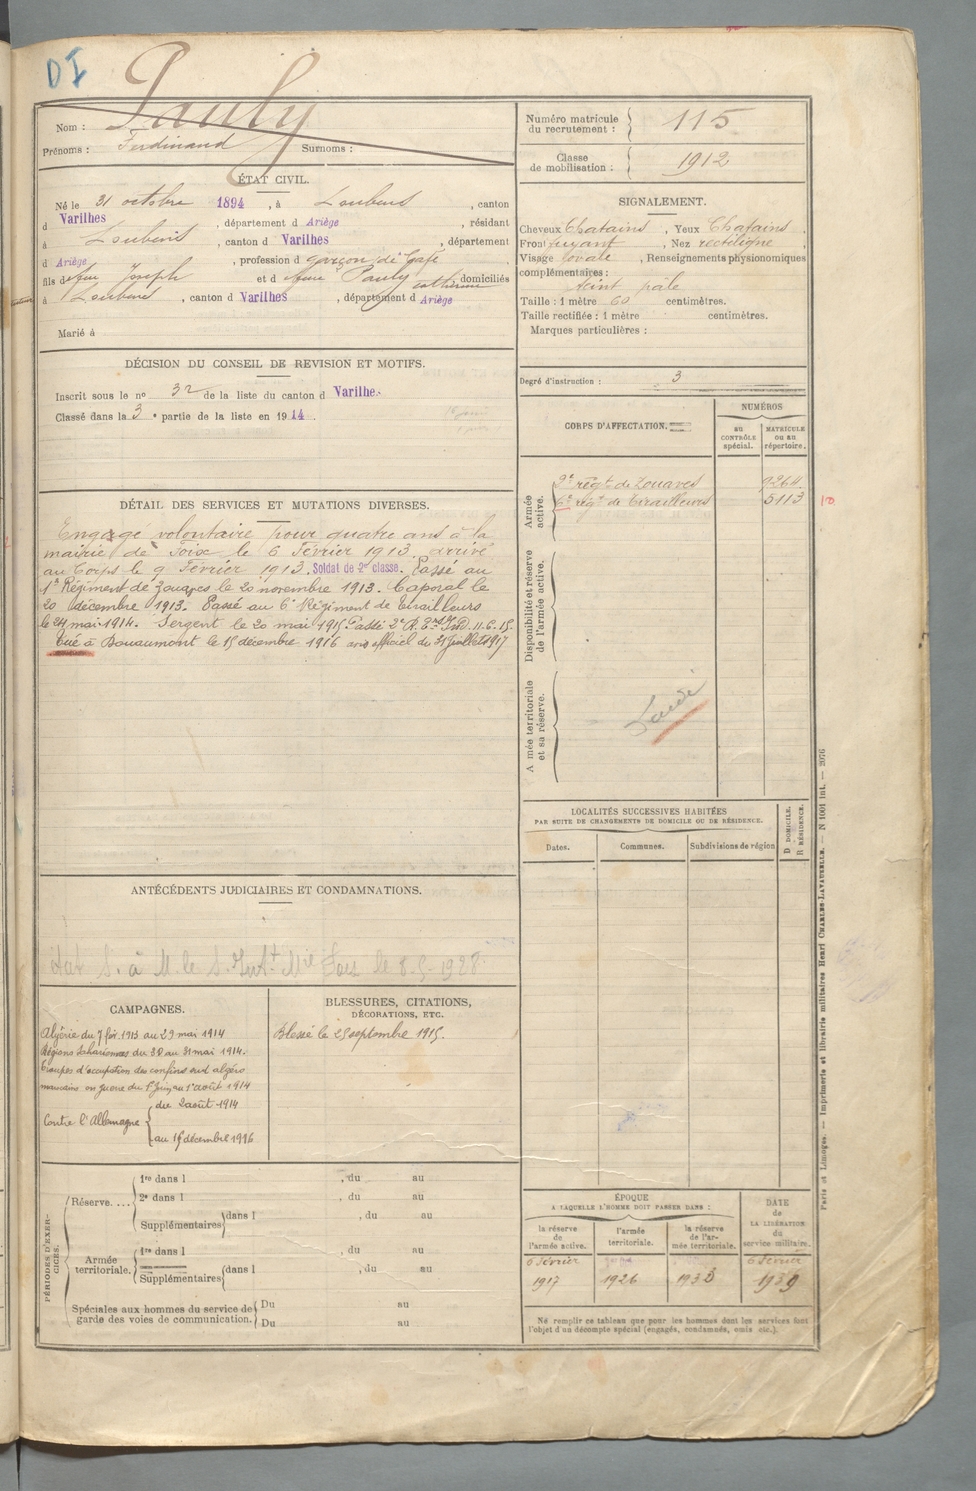 DI
Pauly
Nom :
Prénoms : Ferdinand Surnoms :
Numéro matricule du recrutement : 115
Classe de mobilisation : 1912
ÉTAT CIVIL.
Né le 31 octobre 1894, à Loubens, canton
d Varilhes, département d Ariège, résidant
à Loubens, canton d Varilhes, département
d Ariège, profession d garçon de Café
fils d feu Joseph et d feue Pauly catherine domiciliés
à Loubens, canton d Varilhes, département d Ariège
Marié à
SIGNALEMENT.
Cheveux Chatains, Yeux Chatains,
Front fuyant, Nez rectiligne,
Visage ovale, Renseignements physionomiques
complémentaires :
teint pâle
Taille : 1 mètre 60 centimètres.
Taille rectifiée : 1 mètre centimètres.
Marques particulières :
Degré d'instruction : 3
DÉCISION DU CONSEIL DE REVISION ET MOTIFS.
Inscrit sous le no 32 de la liste du canton d Varilhes
Classé dans la 3 e partie de la liste en 1914.
CORPS D'AFFECTATION.
NUMÉROS
AU CONTRÔLE spécial.
MATRICULE OU AU répertoire.
Armée active.
2e régt de Zouaves 9264
6e régt de Tirailleurs 5113
10
Disponibilité et réserve de l'armée active.
Armée territoriale et sa réserve.
DÉTAIL DES SERVICES ET MUTATIONS DIVERSES.
Engagé volontaire pour quatre ans à la
mairie de Foix le 6 Février 1913. arrivé
au Corps le 9 Février 1913. Soldat de 2e classe. Passé au
1er Régiment de Zouaves le 20 novembre 1913. Caporal le
20 décembre 1913. Passé au 6e Régiment de Tirailleurs
le 24 mai 1914. Sergent le 20 mai 1915. Passé 2e R. 11.6.15.
Tué à Douaumont le 15 décembre 1916 avis officiel du 31 juillet 1917
LOCALITÉS SUCCESSIVES HABITÉES
PAR SUITE DE CHANGEMENTS DE DOMICILE OU DE RÉSIDENCE.
Dates. Communes. Subdivisions de région
D DOMICILE.
R RÉSIDENCE.
ANTÉCÉDENTS JUDICIAIRES ET CONDAMNATIONS.
à M. le S. Foix le 8-5-1928
CAMPAGNES.
Algérie du 7 fév. 1913 au 29 mai 1914
Régions Sahariennes du 30 au 31 mai 1914.
Troupes d'occupation des confins sud algéro
marocains en guerre du 1er Juin au 1er août 1914
Contre l'Allemagne
du 2 août 1914
au 15 décembre 1916
BLESSURES, CITATIONS,
DÉCORATIONS, ETC.
Blessé le 25 septembre 1915.
PÉRIODES D'EXERCICES.
Réserve....
1re dans l , du au
2e dans l , du au
Supplémentaires dans l , du au
Armée territoriale.
1re dans l , du au
Supplémentaires dans l , du au
Spéciales aux hommes du service de
garde des voies de communication.
Du au
Du au
ÉPOQUE
A LAQUELLE L'HOMME DOIT PASSER DANS :
la réserve de l'armée active.
l'armée territoriale.
la réserve de l'armée territoriale.
DATE de LA LIBÉRATION du service militaire.
6 février 6 février
1917 1926 1933 1939
Ne remplir ce tableau que pour les hommes dont les services font
l'objet d'un décompte spécial (engagés, condamnés, omis etc.).
Paris et Limoges. — Imprimerie et librairie militaires Henri CHARLES-LAVAUZELLE. — N 1001 int. — 2076